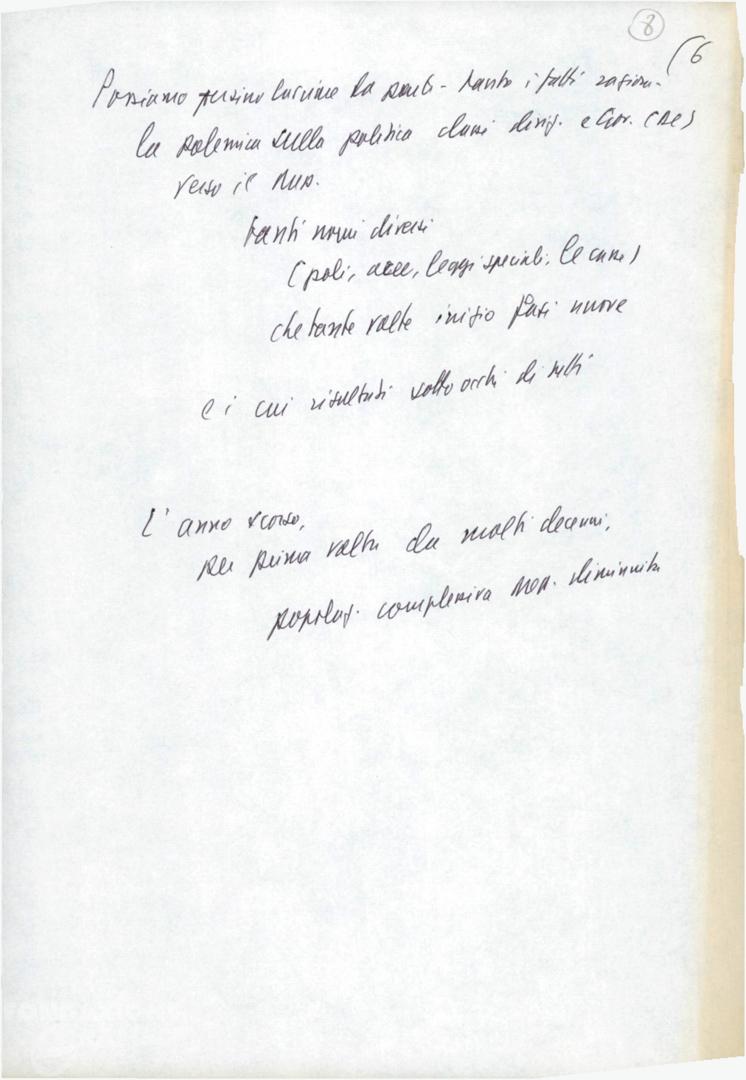 8
(6
Possiamo persino lasciare da parte - tanto i fatti
la polemica sulla politica classi dirig. e Gov. (DC)
verso il Mezz.
tanti nomi diversi
(poli, aree, leggi speciali, le case)
che tante volte inizio fasi nuove
e i cui risultati sotto occhi di tutti
L'anno scorso,
per prima volta da molti decenni,
popolaz. complessiva Mezz. diminuita